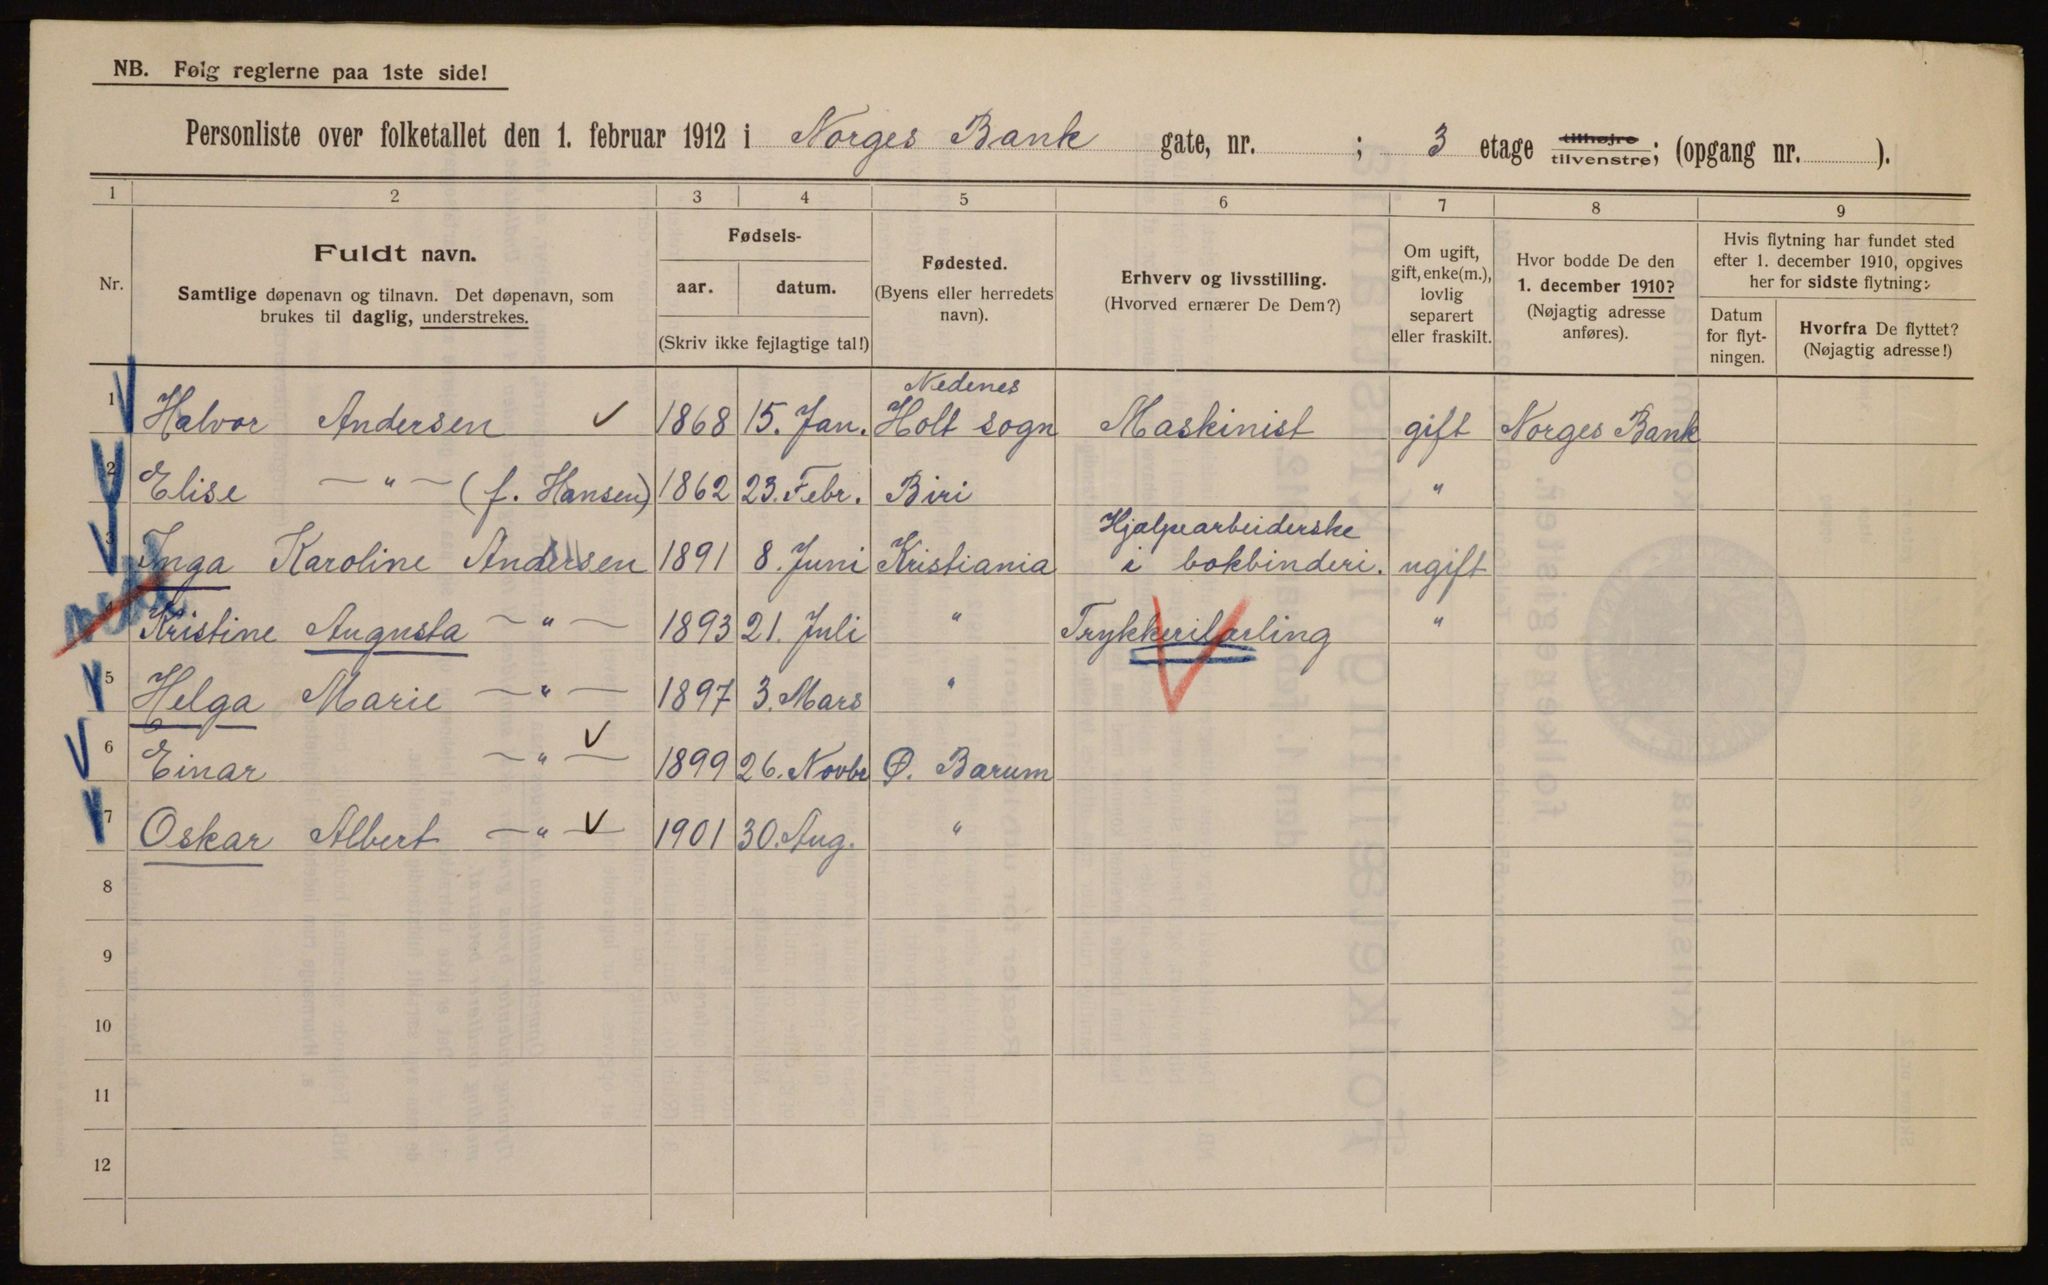 NB. Følg reglerne paa 1ste side!
Personliste over folketallet den 1. februar 1912 i Norges Bank gate, nr. ; 3 etage tilhøjre tilvenstre; (opgang nr. ).
1 2 3 4 5 6 7 8 9
Nr.
Fuldt navn.
Samtlige døpenavn og tilnavn. Det døpenavn, som
brukes til daglig, understrekes.
Fødsels-
aar. datum.
(Skriv ikke fejlagtige tal!)
Fødested.
(Byens eller herredets
navn).
Erhverv og livsstilling.
(Hvorved ernærer De Dem?)
Om ugift,
gift, enke(m.),
lovlig
separert
eller fraskilt.
Hvor bodde De den
1. december 1910?
(Nøjagtig adresse
anføres).
Hvis flytning har fundet sted
efter 1. december 1910, opgives
her for sidste flytning:
Datum
for flyt-
ningen.
Hvorfra De flyttet?
(Nøjagtig adresse!)
Nedenes
1 Halvor Andersen 1868 15. Jan. Holt sogn Maskinist gift Norges Bank
2 Elise — " — (f. Hansen) 1862 23. Febr. Biri "
Hjælpearbeiderske
3 Inga Karoline Andersen 1891 8. Juni Kristiania i bokbinderi. ugift
4 Kristine Augusta — " — 1893 21. Juli " Trykkerilærling "
5 Helga Marie — " — 1897 3. Mars "
6 Einar — " — 1899 26. Novbr Ø. Bærum
7 Oskar Albert — " — 1901 30. Aug. "
8
9
10
11
12